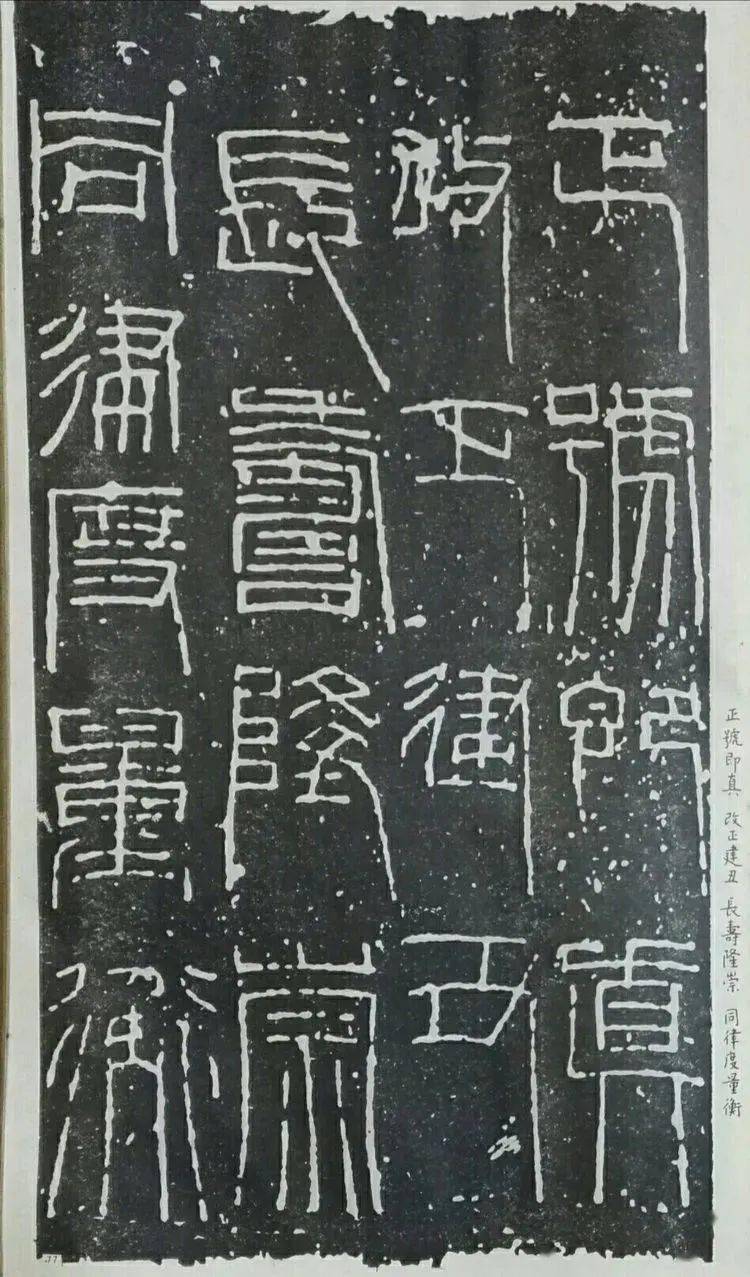 正號即真
改正建丑
長壽隆崇
同律度量衡
正號即真 改正建丑 長壽隆崇 同律度量衡
77